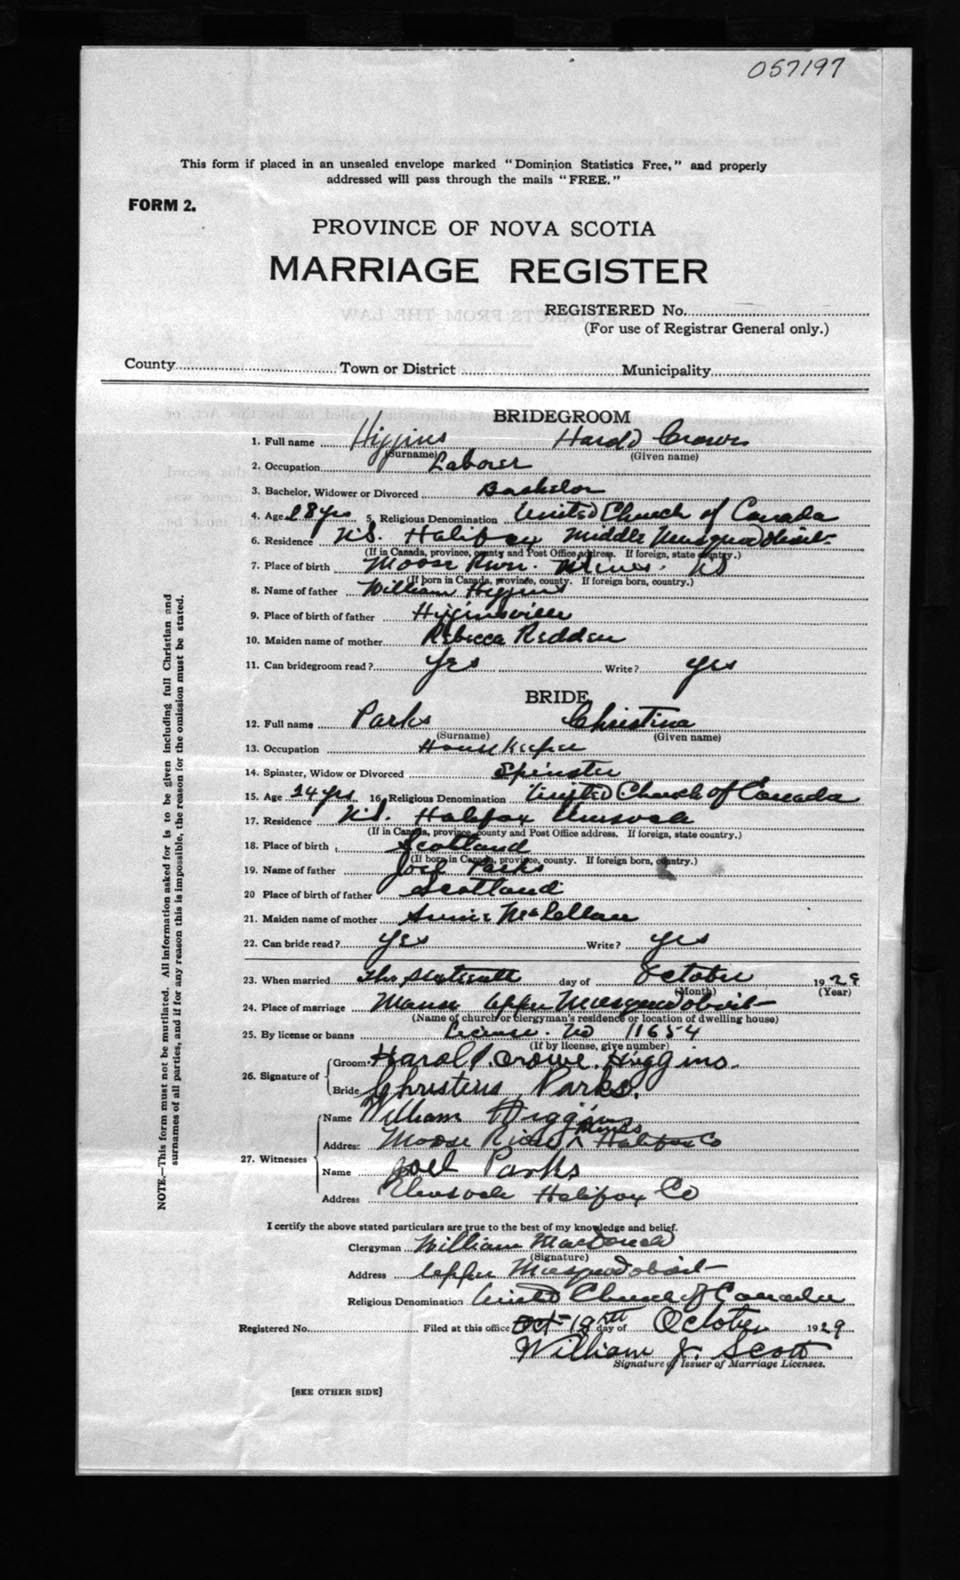 057197
This form if placed in an unsealed envelope marked "Dominion Statistics Free," and properly
addressed will pass through the mails "FREE."
FORM 2.
PROVINCE OF NOVA SCOTIA
MARRIAGE REGISTER
REGISTERED No.
(For use of Registrar General only.)
County Town or District Municipality
BRIDEGROOM
1. Full name Higgins Harold Crowe
(Surname) (Given name)
2. Occupation Laborer
3. Bachelor, Widower or Divorced Bachelor
4. Age 28 yrs 5. Religious Denomination United Church of Canada
6. Residence N.S. Halifax Middle Musquodoboit
(If in Canada, province, county and Post Office address. If foreign, state country.)
7. Place of birth Moose River Mines. NS
(If born in Canada, province, county. If foreign born, country.)
8. Name of father William Higgins
9. Place of birth of father Higginsville
10. Maiden name of mother Rebecca Redden
11. Can bridegroom read? Yes Write? yes
BRIDE
12. Full name Parks Christina
(Surname) (Given name)
13. Occupation Housekeeper
14. Spinster, Widow or Divorced Spinster
15. Age 24 yrs 16. Religious Denomination United Church of Canada
17. Residence N.S. Halifax
(If in Canada, province, county and Post Office address. If foreign, state country.)
18. Place of birth Scotland
(If born in Canada, province, county. If foreign born, country.)
19. Name of father Joel Parks
20 Place of birth of father Scotland
21. Maiden name of mother Annie McLellan
22. Can bride read? Yes Write? yes
23. When married The sixteenth day of October 1929
(Month) (Year)
24. Place of marriage Manse Upper Musquodoboit
(Name of church or clergyman's residence or location of dwelling house)
25. By license or banns License. No 11654
(If by license, give number)
26. Signature of Groom Harold Crowe Higgins.
Bride Christina Parks.
27. Witnesses Name William Higgins
Address Moose River Mines Halifax Co
Name Joel Parks
Address Halifax Co
I certify the above stated particulars are true to the best of my knowledge and belief.
Clergyman William MacDonald
(Signature)
Address Upper Musquodoboit
Religious Denomination United Church of Canada
Registered No. Filed at this office Oct 18th day of October 1929
William J. Scott
Signature of Issuer of Marriage Licenses.
[SEE OTHER SIDE]
NOTE.—This form must not be mutilated. All information asked for is to be given including full Christian and
surnames of all parties, and if for any reason this is impossible, the reason for the omission must be stated.